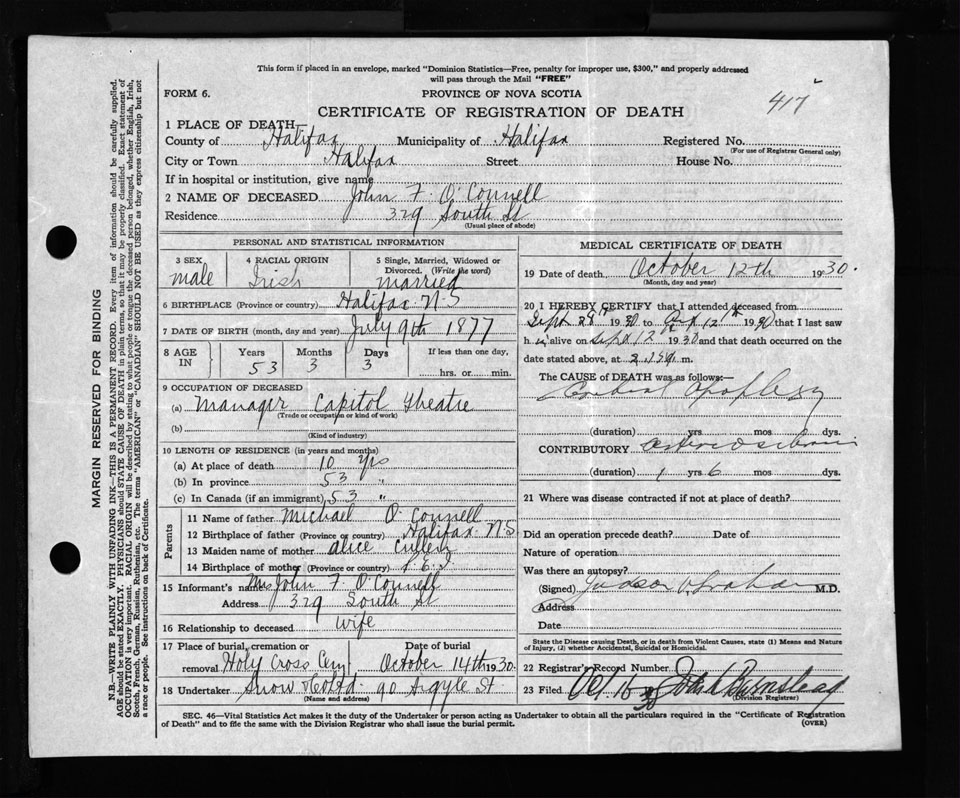 This form if placed in an envelope, marked "Dominion Statistics—Free, penalty for improper use, $300," and properly addressed
will pass through the Mail "FREE"
FORM 6. PROVINCE OF NOVA SCOTIA
417
CERTIFICATE OF REGISTRATION OF DEATH
1 PLACE OF DEATH
County of Halifax Municipality of Halifax Registered No.
(For use of Registrar General only)
City or Town Halifax Street House No.
If in hospital or institution, give name
2 NAME OF DECEASED John F. O'Connell
Residence 329 South St
(Usual place of abode)
PERSONAL AND STATISTICAL INFORMATION
3 SEX 4 RACIAL ORIGIN 5 Single, Married, Widowed or
Divorced. (Write the word)
male Irish married
6 BIRTHPLACE (Province or country) Halifax N.S
7 DATE OF BIRTH (month, day and year) July 9th 1877
8 AGE IN Years Months Days If less than one day,
53 3 3 hrs. or min.
9 OCCUPATION OF DECEASED
(a) Manager Capitol Theatre
(Trade or occupation or kind of work)
(b)
(Kind of industry)
10 LENGTH OF RESIDENCE (in years and months)
(a) At place of death 10 yrs
(b) In province 53 "
(c) In Canada (if an immigrant) 53 "
Parents
11 Name of father Michael O'Connell
12 Birthplace of father (Province or country) Halifax N.S
13 Maiden name of mother Alice
14 Birthplace of mother (Province or country) P.E.I
15 Informant's name Mrs John F. O'Connell
Address 329 South St
16 Relationship to deceased wife
17 Place of burial, cremation or Date of burial
removal Holy Cross Cem October 14th 1930.
18 Undertaker Snow & Co Ltd. 90 Argyle St
(Name and address)
MEDICAL CERTIFICATE OF DEATH
19 Date of death October 12th 1930.
(Month, day and year)
20 I HEREBY CERTIFY that I attended deceased from
Sept 28th 1930 to Oct 12th 1930 that I last saw
h im alive on Sept 12 1930 and that death occurred on the
date stated above, at m.
The CAUSE of DEATH was as follows:—
Cerebral Apoplexy
(duration) yrs mos dys.
CONTRIBUTORY
(duration) 1 yrs 6 mos dys.
21 Where was disease contracted if not at place of death?
Did an operation precede death? Date of
Nature of operation
Was there an autopsy?
(Signed) Judson Graham M.D.
Address
Date
State the Disease causing Death, or in death from Violent Causes, state (1) Means and Nature
of Injury, (2) whether Accidental, Suicidal or Homicidal.
22 Registrar's Record Number
23 Filed Oct. 16 30 John Burnstead
(Division Registrar)
SEC. 46—Vital Statistics Act makes it the duty of the Undertaker or person acting as Undertaker to obtain all the particulars required in the "Certificate of Registration
of Death" and to file the same with the Division Registrar who shall issue the burial permit.
(OVER)
MARGIN RESERVED FOR BINDING
N.B.—WRITE PLAINLY WITH UNFADING INK—THIS IS A PERMANENT RECORD. Every item of information should be carefully supplied.
AGE should be stated EXACTLY. PHYSICIANS should STATE CAUSE OF DEATH in plain terms, so that it may be properly classified. Exact statement of
OCCUPATION is very important. RACIAL ORIGIN will be described by stating to what people or tongue the deceased person belonged, whether English, Irish,
Scotch, French, German, Russian, Ruthenian, etc. The terms "AMERICAN" or "CANADIAN" SHOULD NOT BE USED as they express citizenship but not
a race or people. See instructions on back of Certificate.